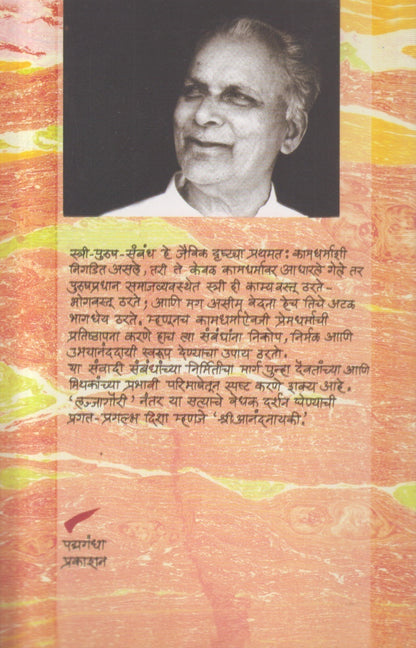 स्त्री-पुरुष-संबंध हे जैविक दृष्ट्या प्रथमतः कामधर्माशी
निगडित असले, तरी ते केवळ कामधर्मावर आधारले गेले तर
पुरुषप्रधान समाजव्यवस्थेत स्त्री ही काम्यवस्तू ठरते-
भोगवस्तू ठरते; आणि मग असीम वेदना हेच तिचे अटळ
भागधेय ठरते. म्हणूनच कामधर्माऐवजी प्रेमधर्माची
प्रतिष्ठापना करणे हाच त्या संबंधांना निकोप, निर्मळ आणि
उभयानंददायी स्वरूप देण्याचा उपाय ठरतो.
या संवादी संबंधांच्या निर्मितीचा मार्ग पुन्हा दैवतांच्या आणि
मिथकांच्या प्रभावी परिभाषेतून स्पष्ट करणे शक्य आहे.
'लज्जागौरी' नंतर या सत्याचे वेधक दर्शन घेण्याची
प्रगत-प्रगल्भ दिशा म्हणजे 'श्रीआनंदनायकी.'
पद्मगंधा
प्रकाशन